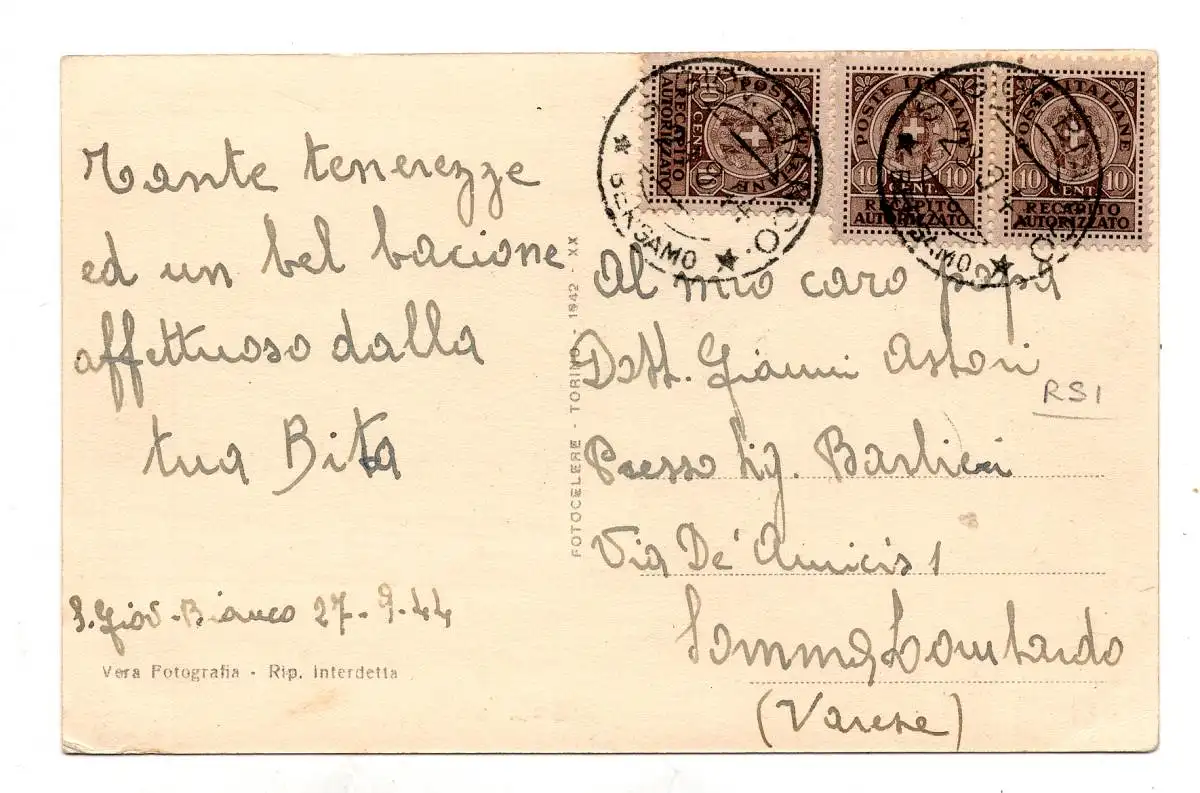 Tante tenerezze
ed un bel bacione
affettuoso dalla
tua Bita
S. Giov. Bianco 27-9-44
Vera Fotografia - Rip. interdetta
FOTOCELERE - TORINO - 1942 - XX
POSTE ITALIANE
10 CENT. 10
RECAPITO
AUTORIZZATO
POSTE ITALIANE
10 CENT. 10
RECAPITO
AUTORIZZATO
POSTE ITALIANE
10 CENT. 10
RECAPITO
AUTORIZZATO
BERGAMO
BERGAMO
Al mio caro papà
Dott. Gianni Astori
RSI
Presso Sig. Barbieri
Via De' Amicis 1
Somma Lombardo
(Varese)